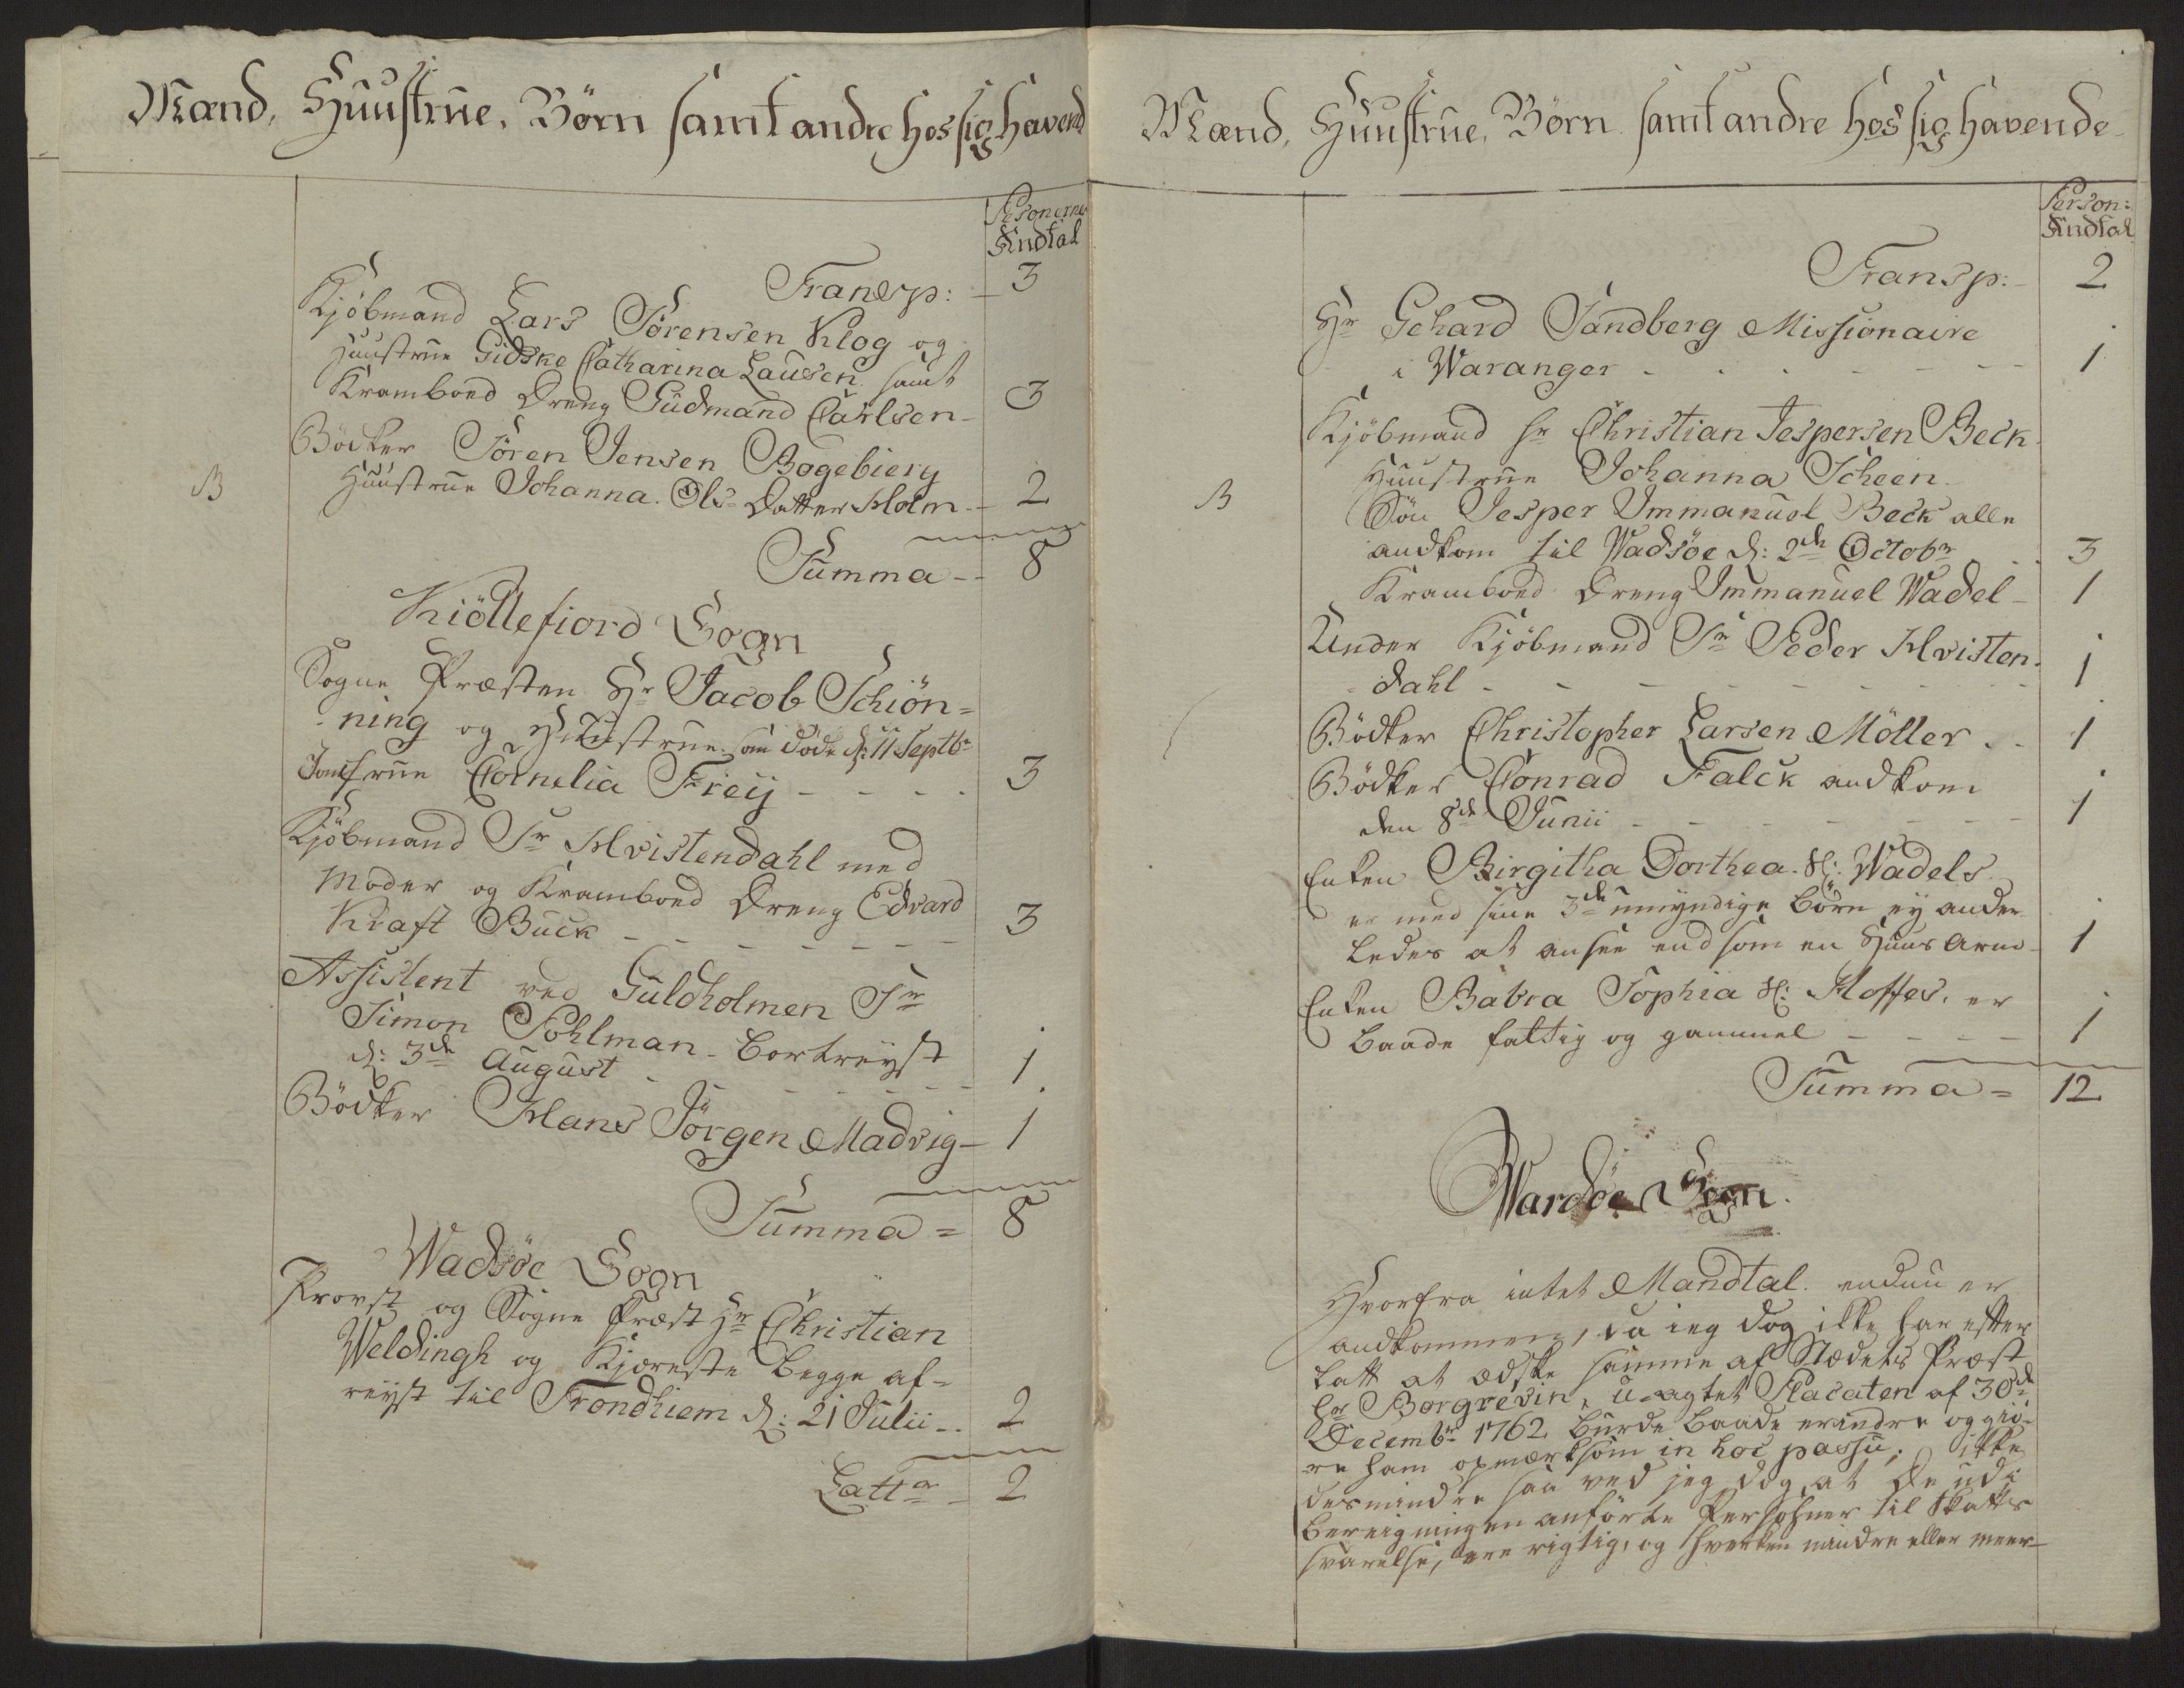 Mænd, Huustrue, Børn samt andre hos sig havend
Personernes
Andtal
Transp: 3
Kjøbmand Lars Sørensen Klog og
Huustrue Gidske Catharina Lausen samt
Kramboed Dreng Gudmand Carlsen - 3
Bødker Søren Jensen Bogebierg
B Huustrue Johanna Ols Datter Holm - 2
Summa - 8
Kiøllefiord Sogn
Sogne Præsten Hr Jacob Schiøn=
ning og Huustrue som døde d: 11 Septbr
Jomfrue Cornelia Freij - 3
Kjøbmand Sr Hvistendahl med
Moder og Kramboed Dreng Edvard
Kraft Buck - 3
Assistent ved Guldholmen Sr
Simon Pohlman - bortreyst
d: 3de August - 1
Bødker Hans Jørgen Madvig - 1
Summa = 8
Wadsøe Sogn
Provst og Sogne Præst Hr Christian
Weldingh og Kjæreste begge af=
reyst til Trondhiem d: 21 Julii - 2
Latter 2
Mænd, Huustrue, Børn samt andre hos sig havende
Person:
Andtal
Transp: 2
Hr Gehard Sandberg Missionaire
i Waranger - 1
Kjøbmand Sr Christian Jespersen Beck
Huustrue Johanna Scheen
B Søn Jesper Immanuel Beck alle
andkom til Wadsøe d: 2de Octobr 3
Kramboed Dreng Immanuel Wadel - 1
Under Kjøbmand Sr Peder Hvisten=
dahl - 1
Bødker Christopher Larsen Møller - 1
Bødker Conrad Falck andkom
den 8de Junii - 1
Enken Birgitha Dorthea Sl: Wadels
er med sine 3de umyndige Børn ey ander
ledes at ansee end som en Huus Arm - 1
Enken Babra Sophia Sl: Hoffes, er
baade fattig og gammel - 1
Summa = 12
Wardøe Sogn.
Hvorfra intet Mandtal endnu er
andkommen, da ieg dog ikke har efter
ladt at ædske samme af Stædets Præst
Hr Borgrevin, u-agtet Placaten af 30de
Decembr 1762 burde baade erindre og giø=
re ham opmærksom in hoc passu; ikke
desmindre saa ved jeg dog, at de udi
bereigningen anførte Persohner til Skatte
svarelse, ere rigtig, og hverken mindre eller meer-